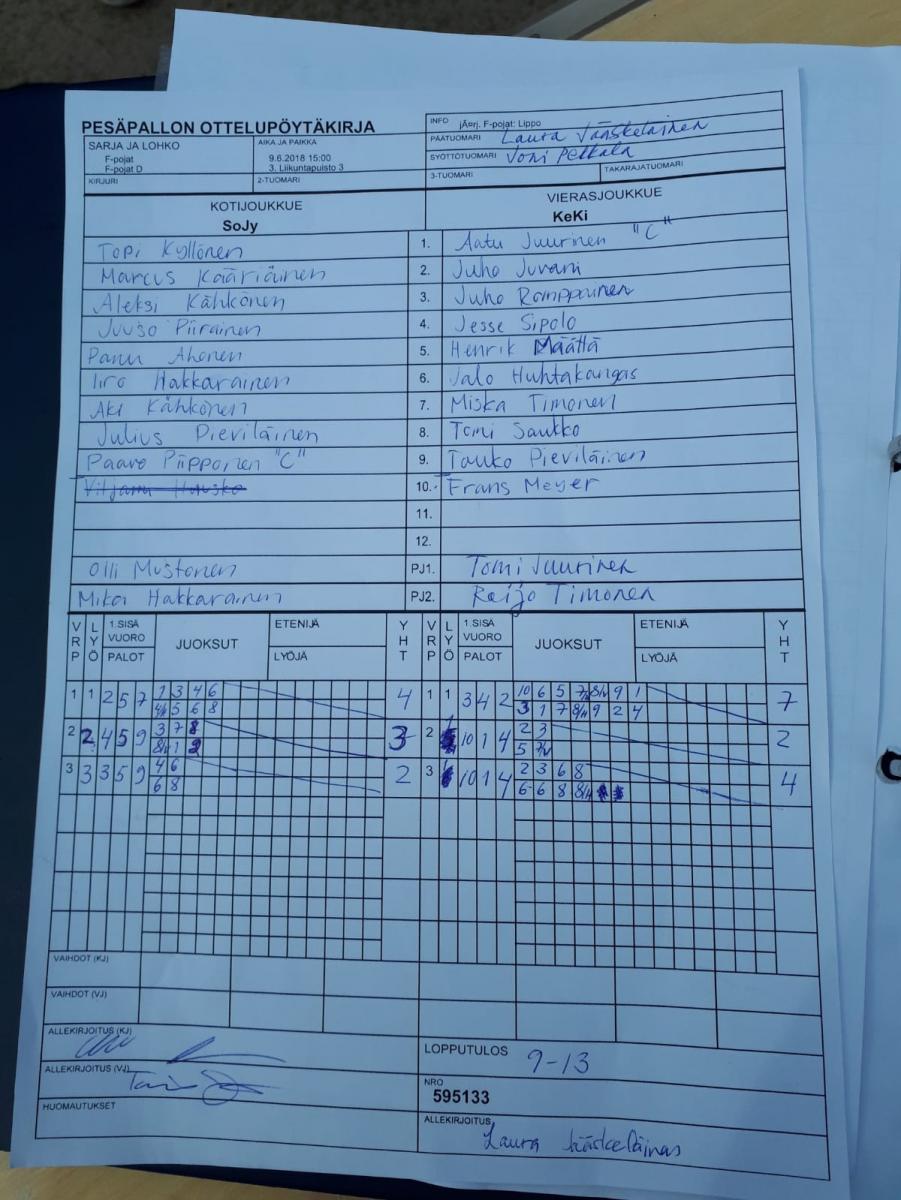 PESÄPALLON OTTELUPÖYTÄKIRJA
INFO jÃ¤rj. F-pojat: Lippo
PÄÄTUOMARI Laura Jääskeläinen
SARJA JA LOHKO
F-pojat
F-pojat D
AIKA JA PAIKKA
9.6.2018 15:00
3. Liikuntapuisto 3
SYÖTTÖTUOMARI Joni Pelkola
KIRJURI
2-TUOMARI
3-TUOMARI
TAKARAJATUOMARI
KOTIJOUKKUE
SoJy
VIERASJOUKKUE
KeKi
Topi Kyllönen 1. Aatu Juurinen "C"
Marcus Kääriäinen 2. Juho Juvani
Aleksi Kähkönen 3. Juho Romppainen
Juuso Piirainen 4. Jesse Sipolo
Panu Ahonen 5. Henrik Määttä
Iiro Hakkarainen 6. Jalo Huhtakangas
Aki Kähkönen 7. Miska Timonen
Julius Pieviläinen 8. Tomi Saukko
Paavo Piipponen "C" 9. Touko Pieviläinen
10. Frans Meyer
11.
12.
Olli Mustonen PJ1. Tomi Juurinen
Mika Hakkarainen PJ2. Reijo Timonen
VRP LYÖ 1.SISÄ VUORO PALOT JUOKSUT ETENIJÄ LYÖJÄ YHT VRP LYÖ 1.SISÄ VUORO PALOT JUOKSUT ETENIJÄ LYÖJÄ YHT
1 1 2 5 7 1 3 4 6 4 1 1 3 4 2 10 6 5 9 1 7
5 6 8 3 1 7 9 2 4
2 2 4 5 9 3 7 8 3 2 10 1 4 2 3 2
1 2 5
3 3 3 5 9 4 6 2 3 10 1 4 2 3 6 8 4
6 8 6 6 8
VAIHDOT (KJ)
VAIHDOT (VJ)
ALLEKIRJOITUS (KJ)
ALLEKIRJOITUS (VJ)
HUOMAUTUKSET
LOPPUTULOS 9-13
NRO
595133
ALLEKIRJOITUS
Laura Jääskeläinen